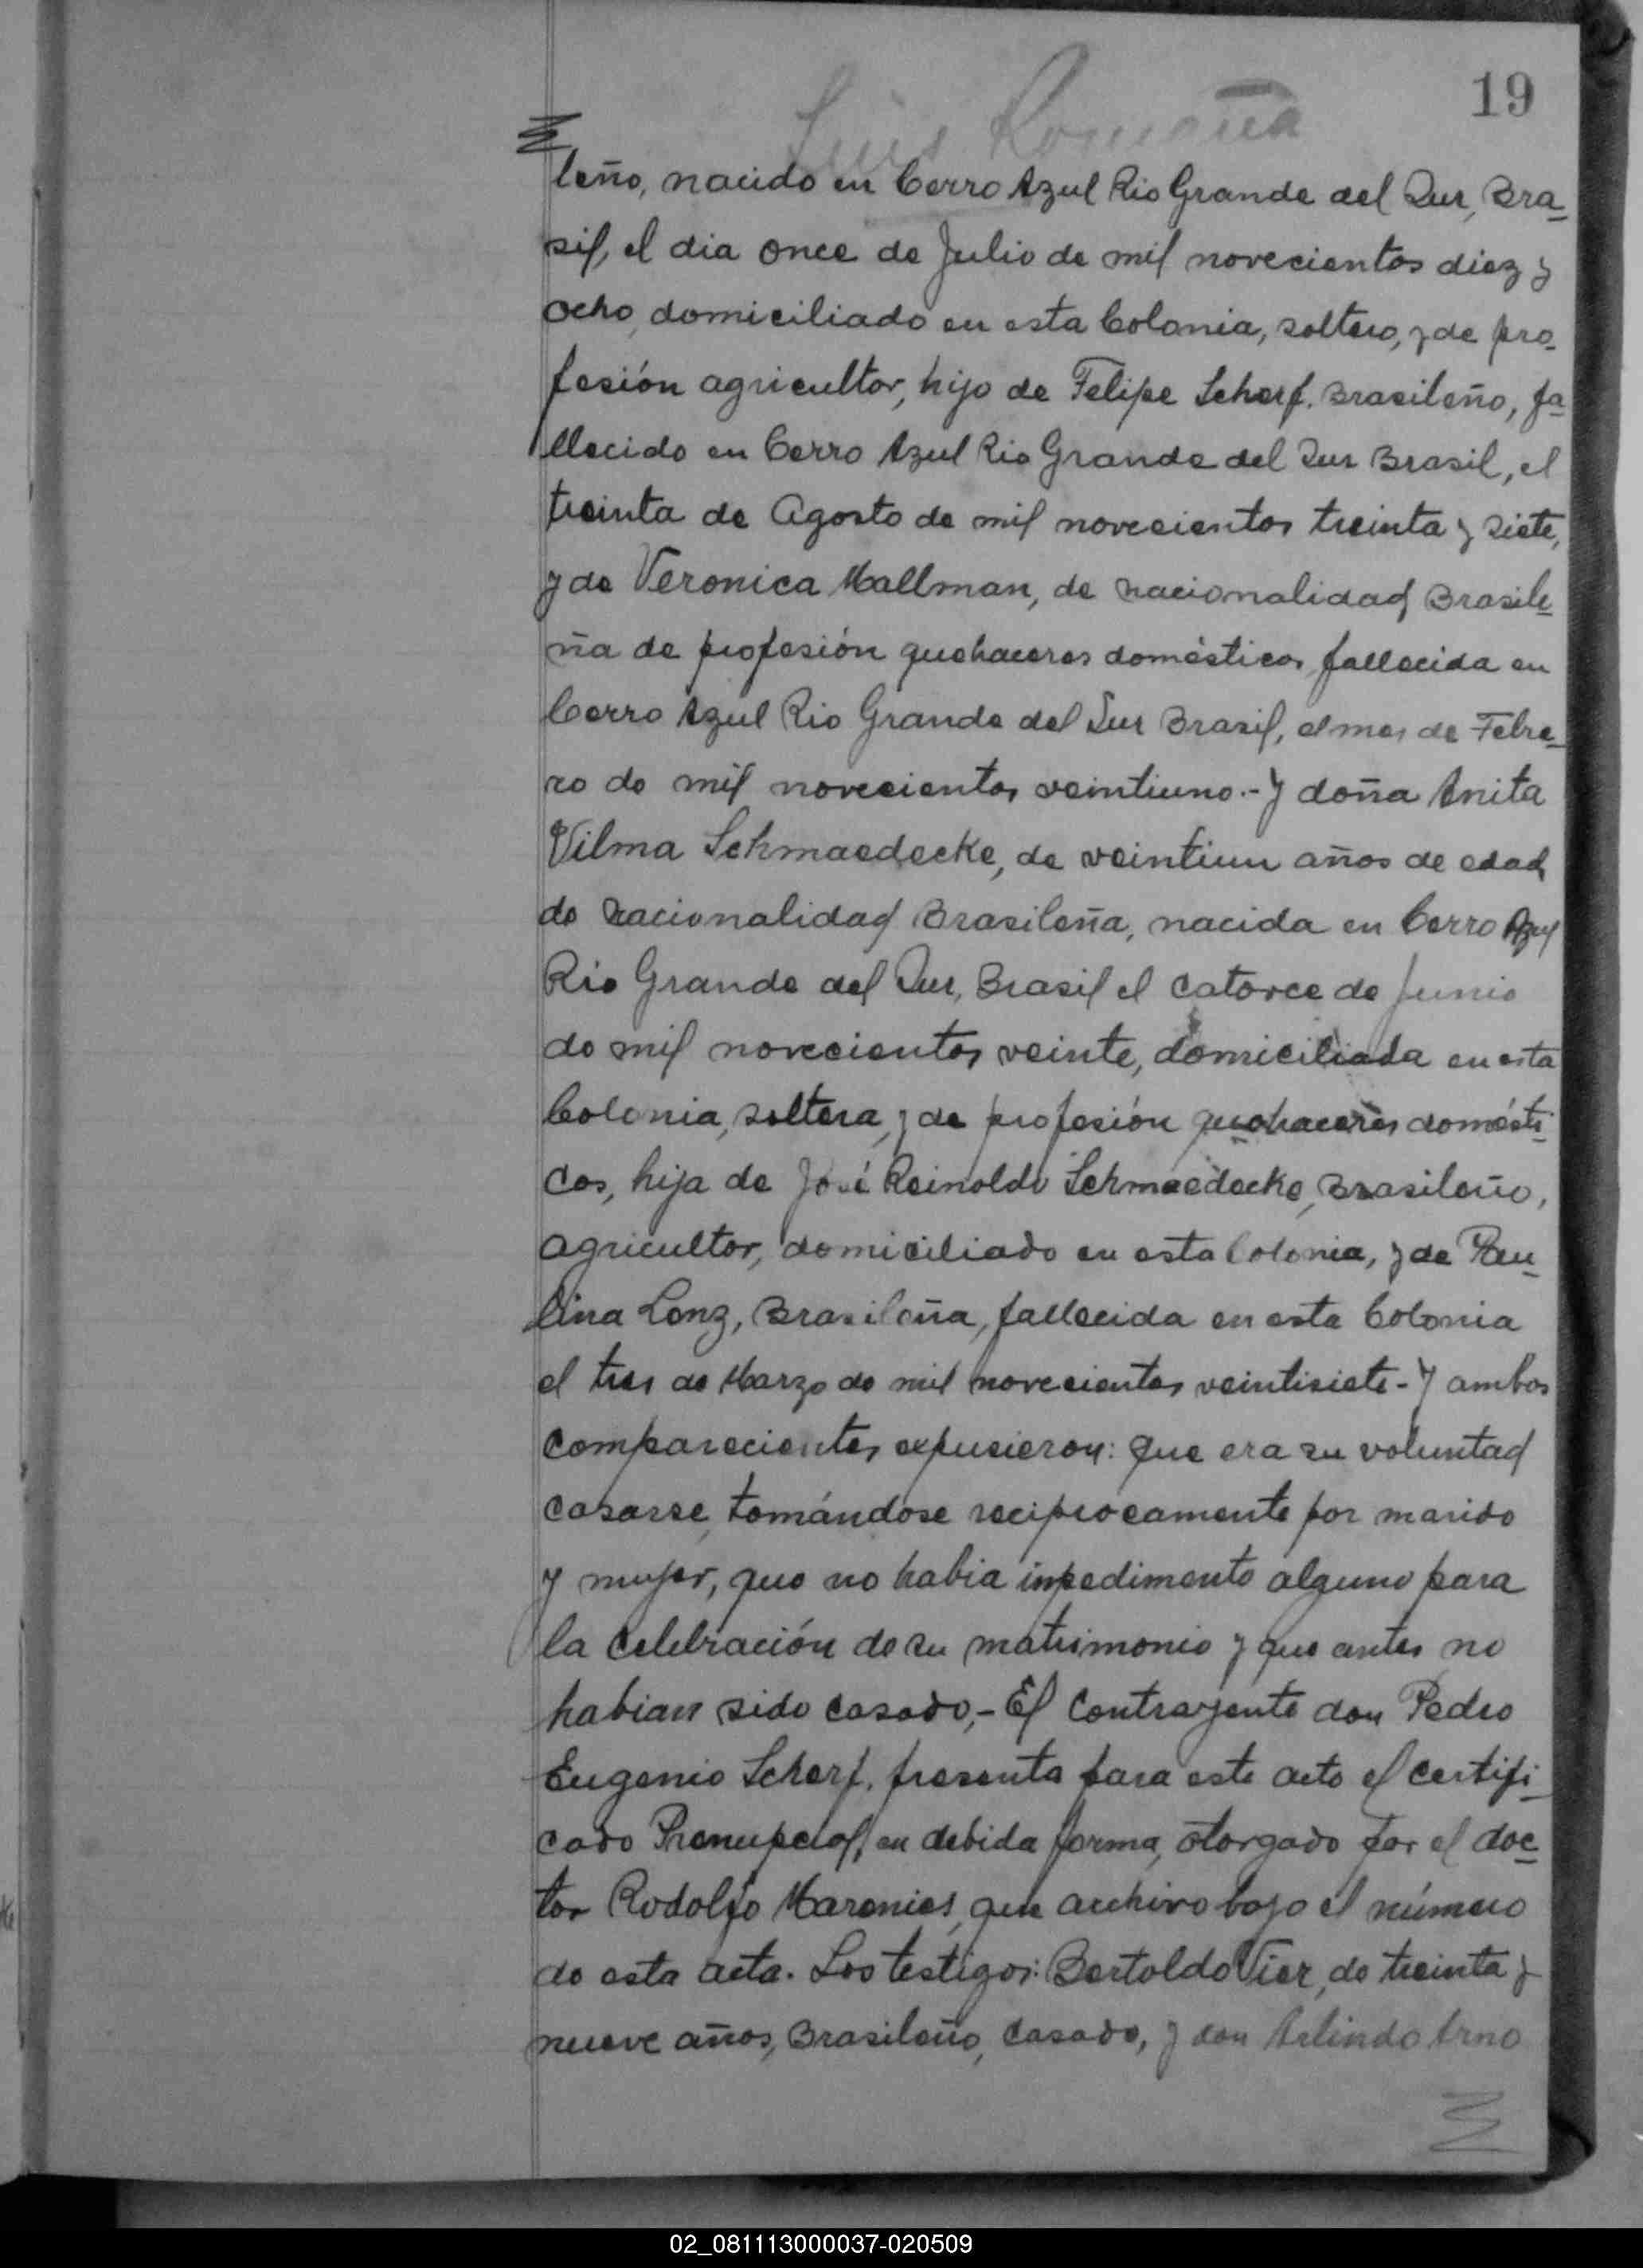 19
Luis Romaña
leño, nacido en Cerro Azul Rio Grande del Sur, Bra-
sil, el dia once de Julio de mil novecientos diez y
ocho, domiciliado en esta Colonia, soltero, y de pro-
fesión agricultor, hijo de Felipe Scherf. Brasileño, fa-
llecido en Cerro Azul Rio Grande del Sur Brasil, el
treinta de Agosto de mil novecientos treinta y siete,
y de Veronica Mallman, de nacionalidad Brasile-
ña de profesión quehaceres domésticos, fallecida en
Cerro Azul Rio Grande del Sur Brasil, el mes de Febre-
ro de mil novecientos veintiuno.- Y doña Anita
Vilma Schmaedecke, de veintiun años de edad,
de nacionalidad Brasileña, nacida en Cerro Azul
Rio Grande del Sur, Brasil el catorce de Junio
de mil novecientos veinte, domiciliada en esta
Colonia, soltera, y de profesión quehaceres domésti-
cos, hija de José Reinoldo Schmaedecke, Brasileño,
agricultor, domiciliado en esta Colonia, y de Pau-
lina Lenz, Brasileña, fallecida en esta Colonia
el tres de Marzo de mil novecientos veintisiete.- Y ambos
comparecientes expusieron: que era su voluntad
casarse, tomándose reciprocamente por marido
y mujer, que no habia inpedimento alguno para
la celebración de su matrimonio y que antes no
habian sido casado,- El contrayente don Pedro
Eugenio Scherf. presenta para este acto el certifi-
cado Prenupcial, en debida forma, otorgado por el doc-
tor Rodolfo Marenics, que archivo bajo el número
de esta acta. Los testigos: Bertoldo Vier, de treinta y
nueve años, Brasileño, casado, y don Arlindo Arno
02_081113000037-020509